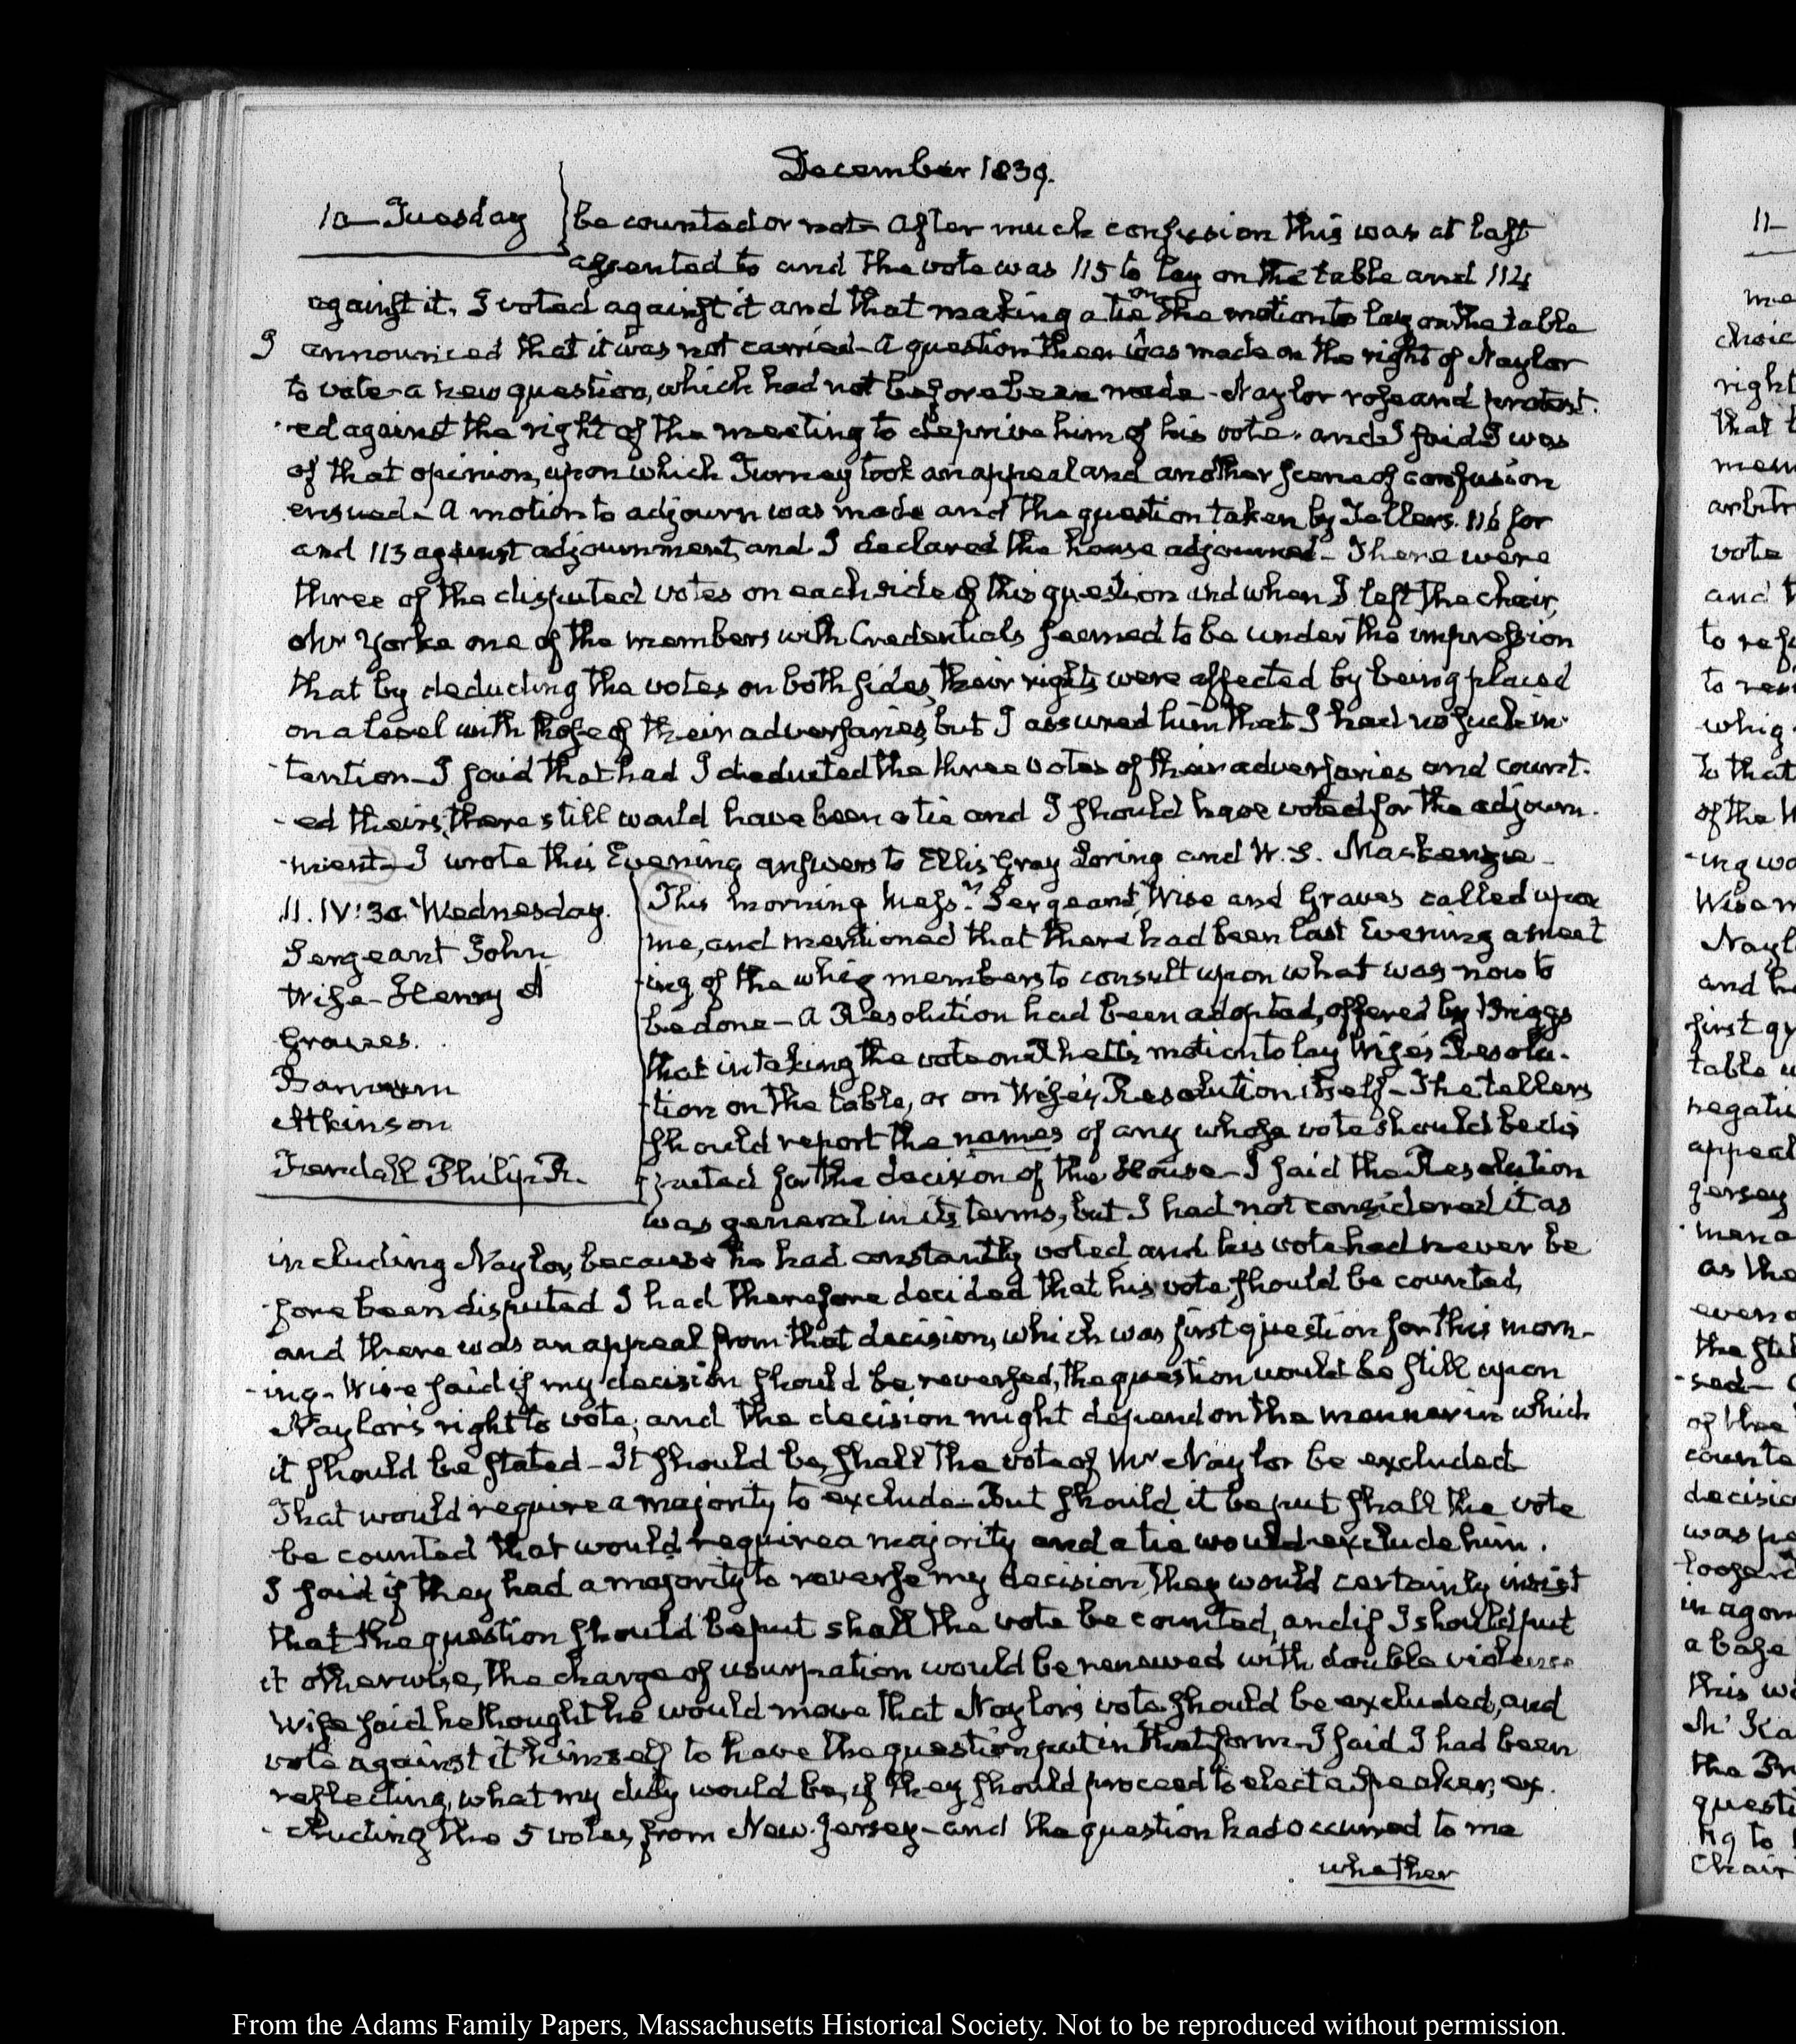 December 1839.
10 Tuesday
be counted or not— After much confusion this was at last
assented to and the vote was 115 to lay on the table and 114
against it. I voted against it and that making a tie on the motion to lay on the table
I announced that it was not carried— A question then was made on the right of Naylor
to vote— a new question, which had not before been made— Naylor rose and protest-
-ed against the right of the meeting to deprive him of his vote, and I said I was
of that opinion, upon which Turney took an appeal and another scene of confusion
ensued— A motion to adjourn was made and the question taken by Tellers. 116 for
and 113 against adjournment, and I declared the house adjourned— There were
three of the disputed votes on each side of this question and when I left the chair,
Mr Yorke one of the members with Credentials seemed to be under the impression
that by deducting the votes on both sides, their rights were affected by being placed
on a level with those of their adversaries, but I assured him that I had no such in-
-tention— I said that had I deducted the three votes of their adversaries and count-
-ed theirs, there still would have been a tie and I should have voted for the adjourn-
-ment— I wrote this Evening answers to Ellis Gray Loring and W. S. Mackenzie—
11. IV:30. Wednesday.
Sergeant John
Wise— Henry A
Graves.
Barnum
Atkinson
Fendall Philip R.
This morning Messrs. Sergeant, Wise and Graves called upon
me, and mentioned that there had been last Evening a meet
-ing of the whig members to consult upon what was now to
be done— A Resolution had been adopted, offered by Briggs
that in taking the vote on Rhett's motion to lay Wise's Resolu-
-tion on the table, or on Wise's Resolution itself— The tellers
should report the names of any whose vote should be dis
puted for the decision of the House— I said the Resolution
was general in its terms, but I had not considered it as
including Naylor, because he had constantly voted and his vote had never be
-fore been disputed I had therefore decided that his vote should be counted,
and there was an appeal from that decision, which was first question for this morn-
-ing— Wise said if my decision should be reversed, the question would be still upon
Naylor's right to vote; and the decision might depend on the manner in which
it should be stated— It should be, shall the vote of Mr Naylor be excluded
That would require a majority to exclude— But should it be put shall the vote
be counted that would require a majority and a tie would exclude him.
I said if they had a majority to reverse my decision, they would certainly insist
that the question should be put shall the vote be counted, and if I should put
it otherwise, the charge of usurpation would be renewed with double violence
Wise said he thought he would move that Naylor's vote should be excluded, and
vote against it himself to have the question put in that form— I said I had been
reflecting, what my duty would be, if they should proceed to elect a Speaker, ex-
-cluding the 5 votes from New-Jersey— and the question had occurred to me
whether
11-
me
choic
right
that t
mem
arbitr
vote
and t
to ref
to
whig
To that
of the
-ing wo
Wise m
Nayl
and h
first qu
table
negati
appeal
Jersey
as the
even
the
-sed—
of the
counte
decisio
was
in
a base
this
the
questi
to
Chair
From the Adams Family Papers, Massachusetts Historical Society. Not to be reproduced without permission.